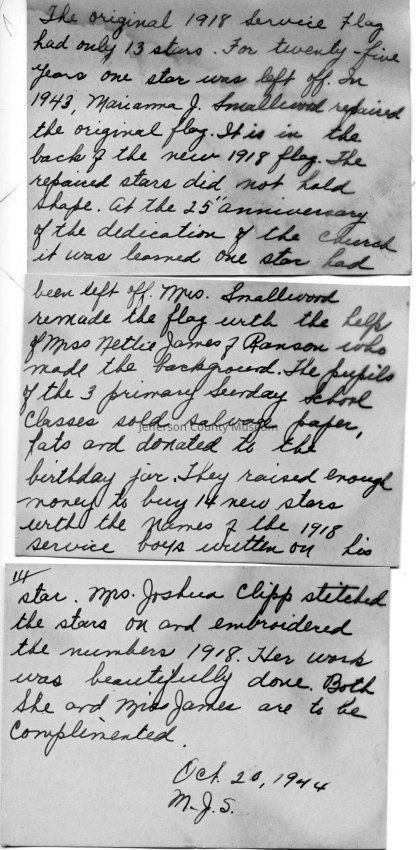 The original 1918 Service Flag
had only 13 stars. For twenty-five
years one star was left off. In
1943, Marianna J. Smallwood repaired
the original flag. It is in the
back of the new 1918 flag. The
repaired stars did not hold
shape. At the 25" anniversary
of the dedication of the church
it was learned one star had
been left off. Mrs. Smallwood
remade the flag with the help
of Miss Nettie James of Ranson who
made the background. The pupils
of the 3 primary Sunday School
Classes sold salvage paper,
Jefferson County Museum
fats and donated to the
birthday jar. They raised enough
money to buy 14 new stars
with the names of the 1918
service boys written on his
14
star. Mrs. Joshua Clipp stitched
the stars on and embroidered
the numbers 1918. Her work
was beautifully done. Both
She and Miss James are to be
Complimented.
Oct. 20, 1944
M.J.S.